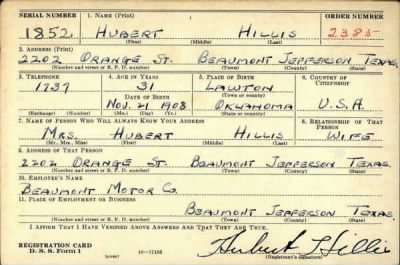 SERIAL NUMBER 1. NAME (Print) ORDER NUMBER
1852 HUBERT HILLIS 2385
(First) (Middle) (Last)
2. ADDRESS (Print)
2202 ORANGE ST. BEAUMONT JEFFERSON TEXAS
(Number and street or R. F. D. number) (Town) (County) (State)
3. TELEPHONE 4. AGE IN YEARS 5. PLACE OF BIRTH 6. COUNTRY OF CITIZENSHIP
1737 31 LAWTON
DATE OF BIRTH (Town or county)
NOV. 21 1908 OKLAHOMA U.S.A.
(Exchange) (Number) (Mo.) (Day) (Yr.) (State or country)
7. NAME OF PERSON WHO WILL ALWAYS KNOW YOUR ADDRESS 8. RELATIONSHIP OF THAT PERSON
MRS. HUBERT HILLIS WIFE
(Mr., Mrs., Miss) (First) (Middle) (Last)
9. ADDRESS OF THAT PERSON
2202 ORANGE ST. BEAUMONT JEFFERSON TEXAS
(Number and street or R. F. D. number) (Town) (County) (State)
10. EMPLOYER'S NAME
BEAUMONT MOTOR CO.
11. PLACE OF EMPLOYMENT OR BUSINESS
BEAUMONT JEFFERSON TEXAS
(Number and street or R. F. D. number) (Town) (County) (State)
I AFFIRM THAT I HAVE VERIFIED ABOVE ANSWERS AND THAT THEY ARE TRUE.
REGISTRATION CARD
D. S. S. Form 1 16—17105 Hubert Hillis
(Registrant's signature)